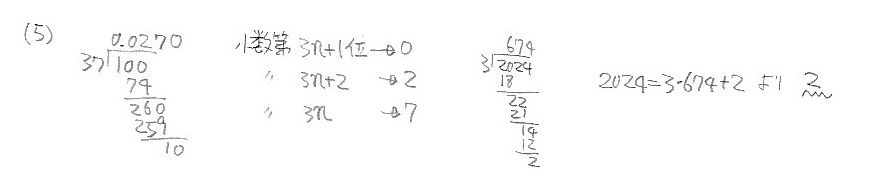 (5)
0.0270
37)100
74
260
259
10
小数第 3n+1位→0
〃 3n+2 →2
〃 3n →7
674
3)2024
18
22
21
14
12
2
2024=3·674+2 より 2